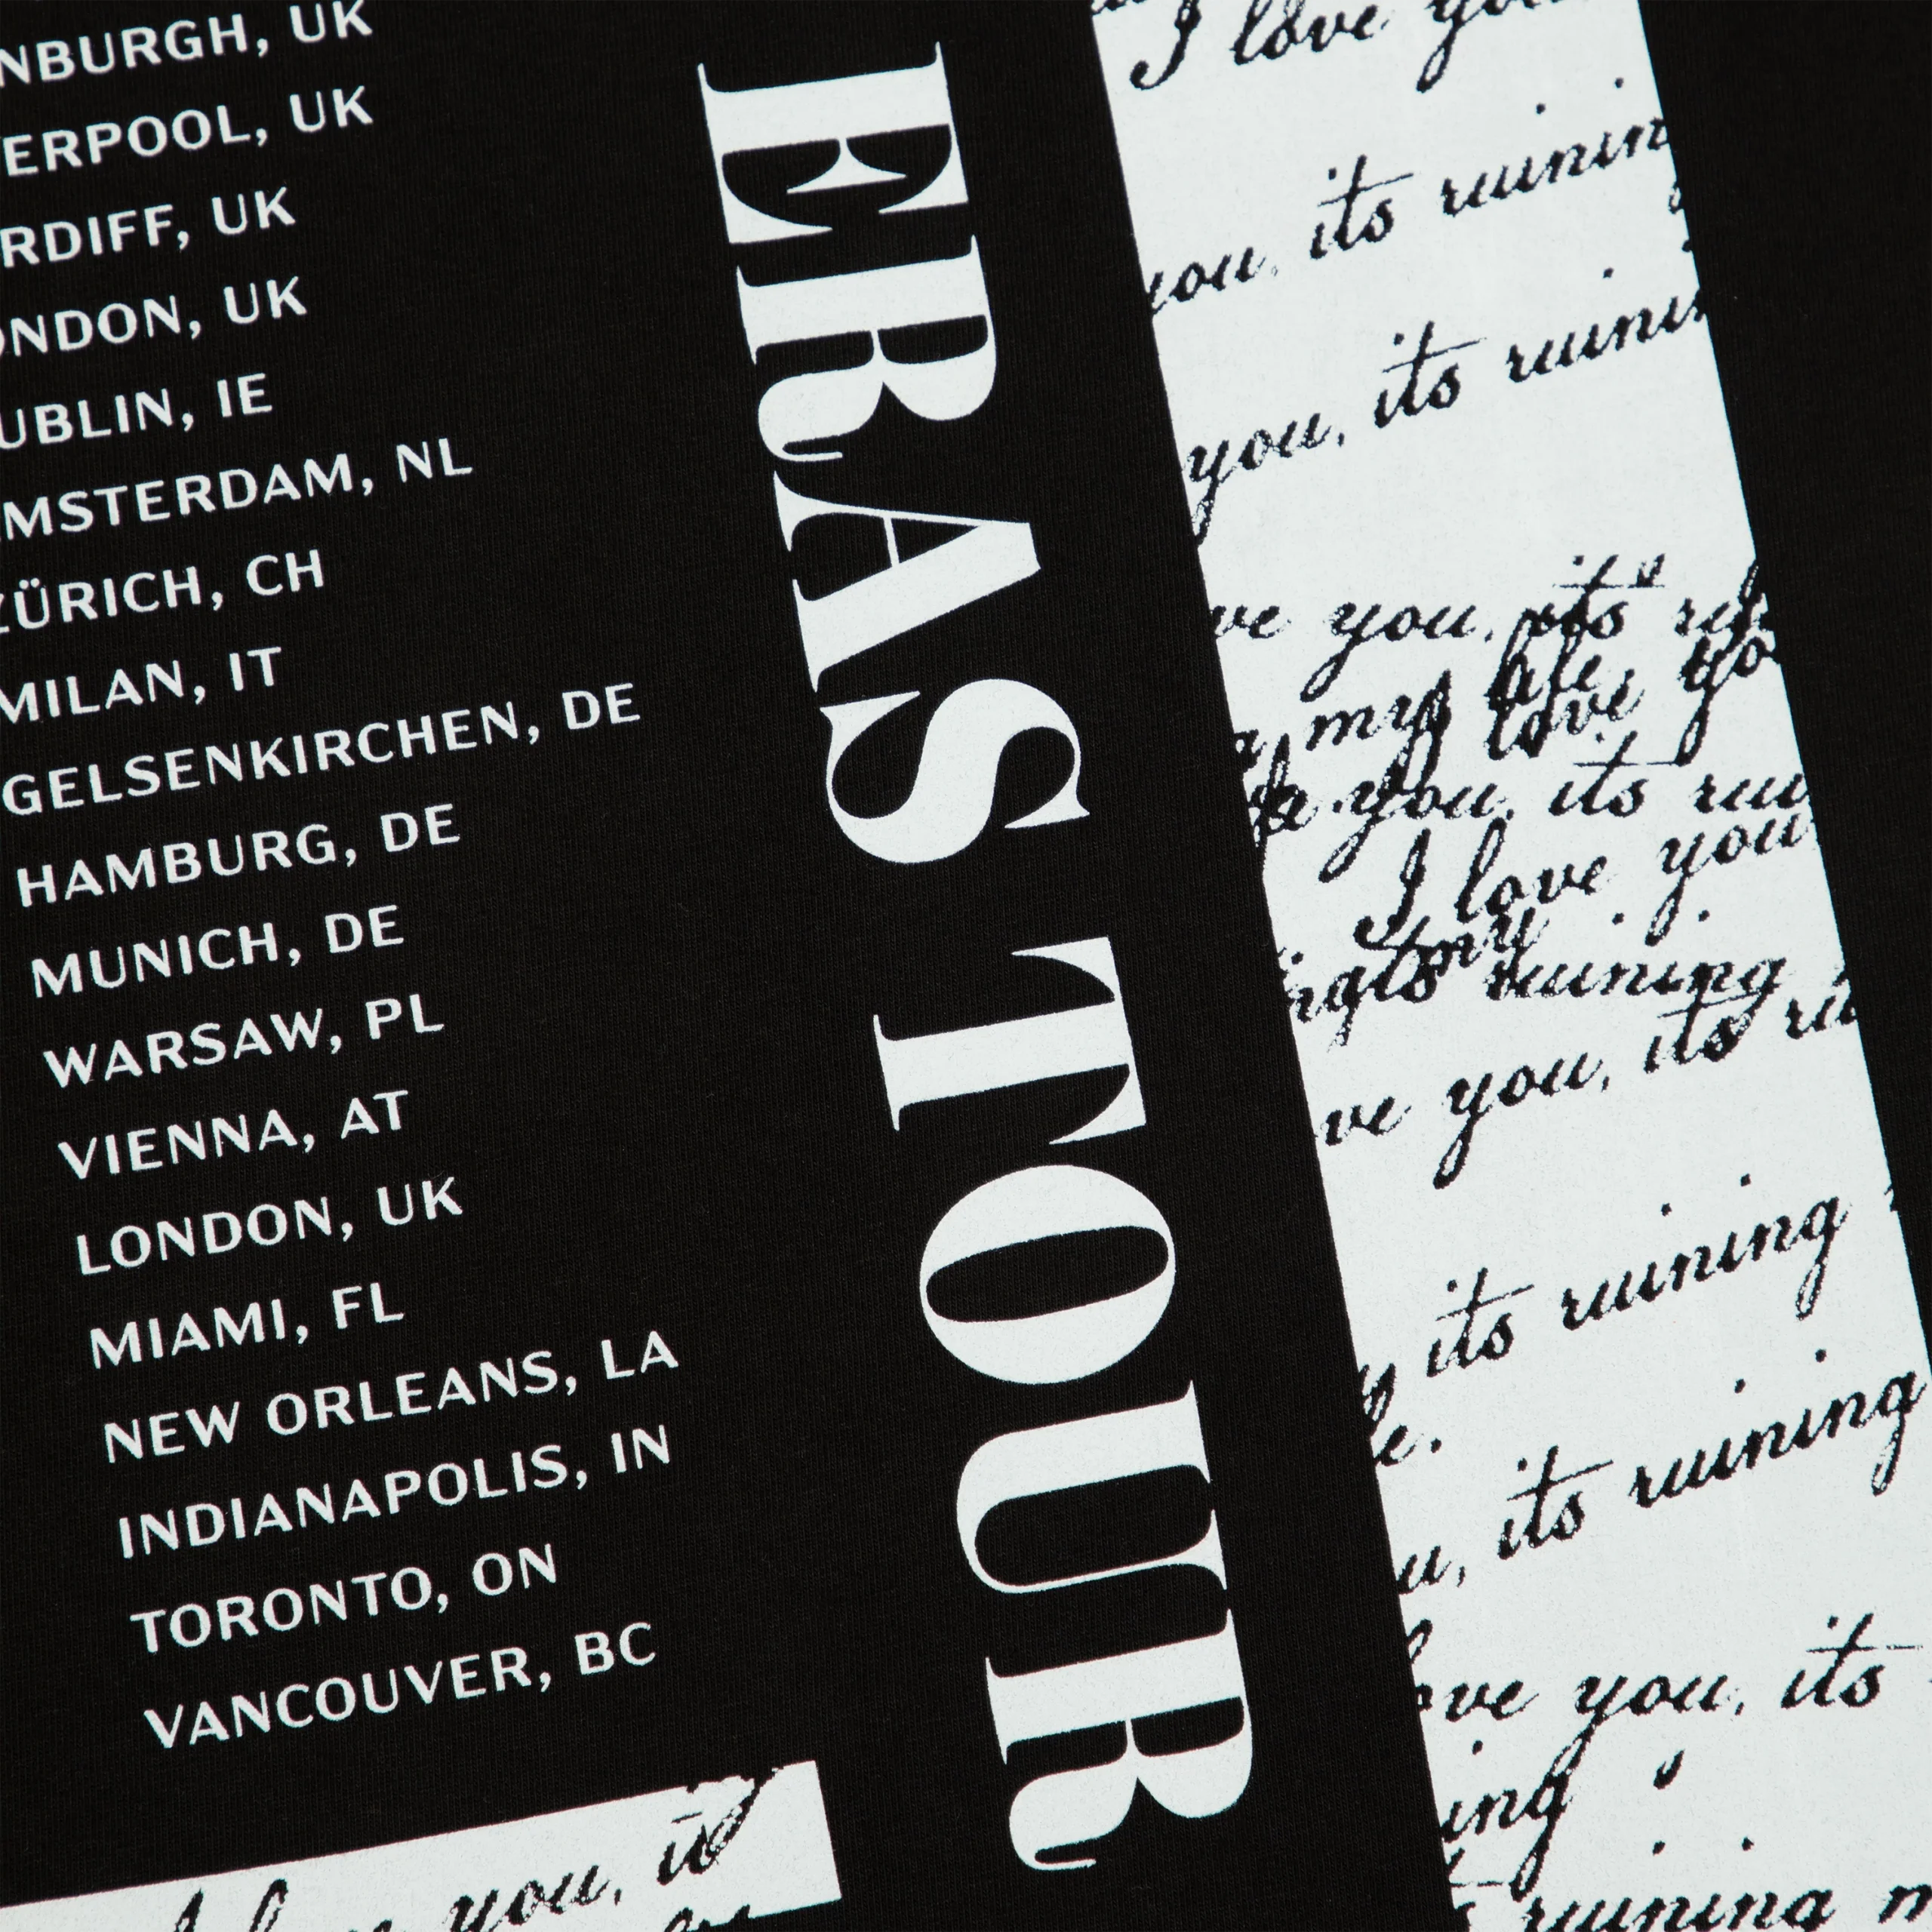 NBURGH, UK
ERPOOL, UK
RDIFF, UK
ONDON, UK
UBLIN, IE
MSTERDAM, NL
ZÜRICH, CH
MILAN, IT
GELSENKIRCHEN, DE
HAMBURG, DE
MUNICH, DE
WARSAW, PL
VIENNA, AT
LONDON, UK
MIAMI, FL
NEW ORLEANS, LA
INDIANAPOLIS, IN
TORONTO, ON
VANCOUVER, BC
you, it
ERAS TOUR
I love you
you, its ruining
you, its ruini
ve you, its
my life. I love yo
you, its rui
I love you
my
ruining
ve you, its ru
its ruining
fe.
u, its ruining
ove you, its
ing
ruining m